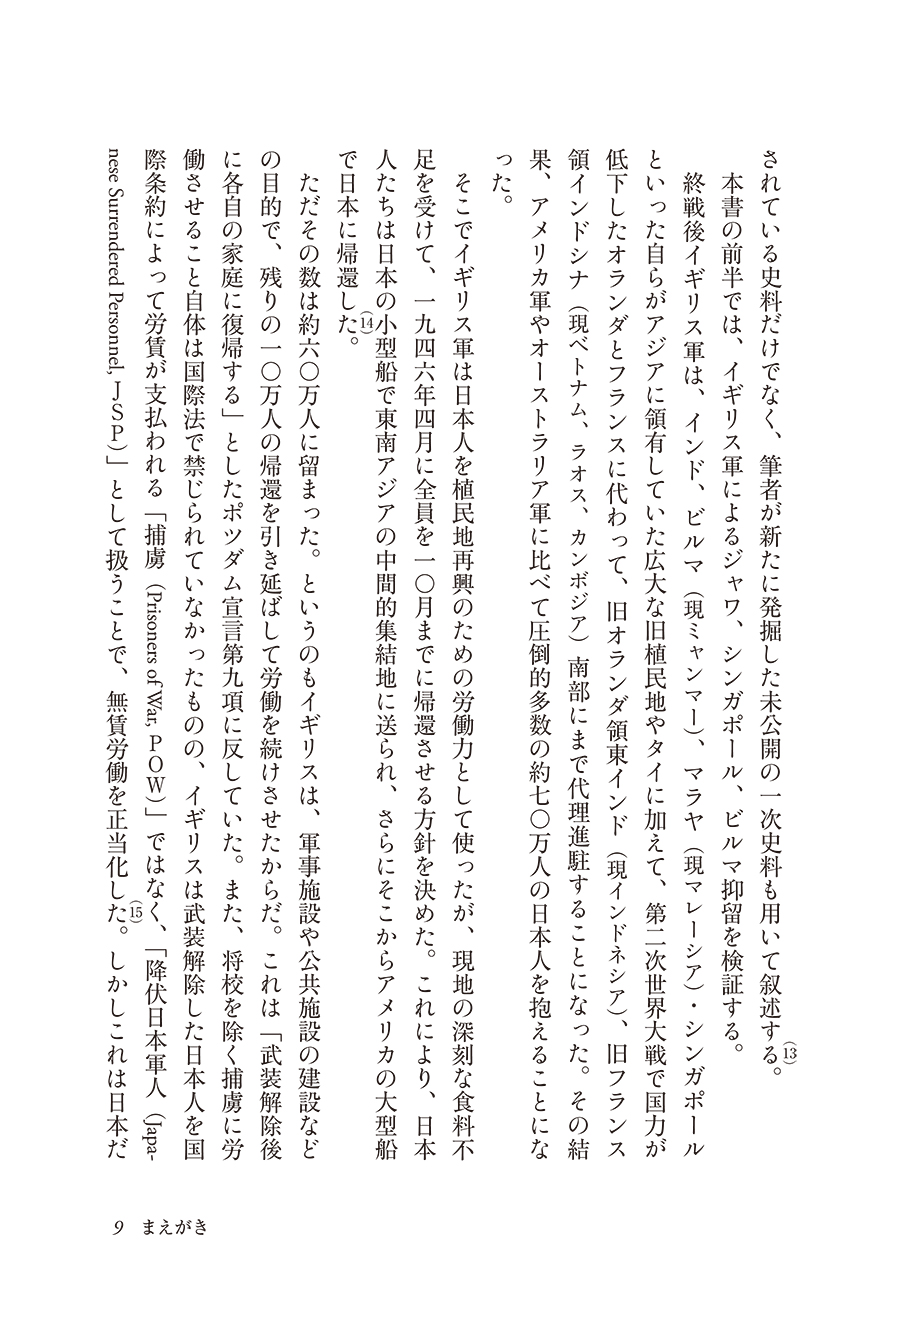 されている史料だけでなく、筆者が新たに発掘した未公開の一次史料も用いて叙述する(13)。
本書の前半では、イギリス軍によるジャワ、シンガポール、ビルマ抑留を検証する。
終戦後イギリス軍は、インド、ビルマ（現ミャンマー）、マラヤ（現マレーシア）・シンガポール
といった自らがアジアに領有していた広大な旧植民地やタイに加えて、第二次世界大戦で国力が
低下したオランダとフランスに代わって、旧オランダ領東インド（現インドネシア）、旧フランス
領インドシナ（現ベトナム、ラオス、カンボジア）南部にまで代理進駐することになった。その結
果、アメリカ軍やオーストラリア軍に比べて圧倒的多数の約七〇万人の日本人を抱えることにな
った。
そこでイギリス軍は日本人を植民地再興のための労働力として使ったが、現地の深刻な食料不
足を受けて、一九四六年四月に全員を一〇月までに帰還させる方針を決めた。これにより、日本
人たちは日本の小型船で東南アジアの中間的集結地に送られ、さらにそこからアメリカの大型船
で日本に帰還した(14)。
ただその数は約六〇万人に留まった。というのもイギリスは、軍事施設や公共施設の建設など
の目的で、残りの一〇万人の帰還を引き延ばして労働を続けさせたからだ。これは「武装解除後
に各自の家庭に復帰する」としたポツダム宣言第九項に反していた。また、将校を除く捕虜に労
働させること自体は国際法で禁じられていなかったものの、イギリスは武装解除した日本人を国
際条約によって労賃が支払われる「捕虜（Prisoners of War, ＰＯＷ）」ではなく、「降伏日本軍人（Japa-
nese Surrendered Personnel, ＪＳＰ）」として扱うことで、無賃労働を正当化した(15)。しかしこれは日本だ
9 まえがき